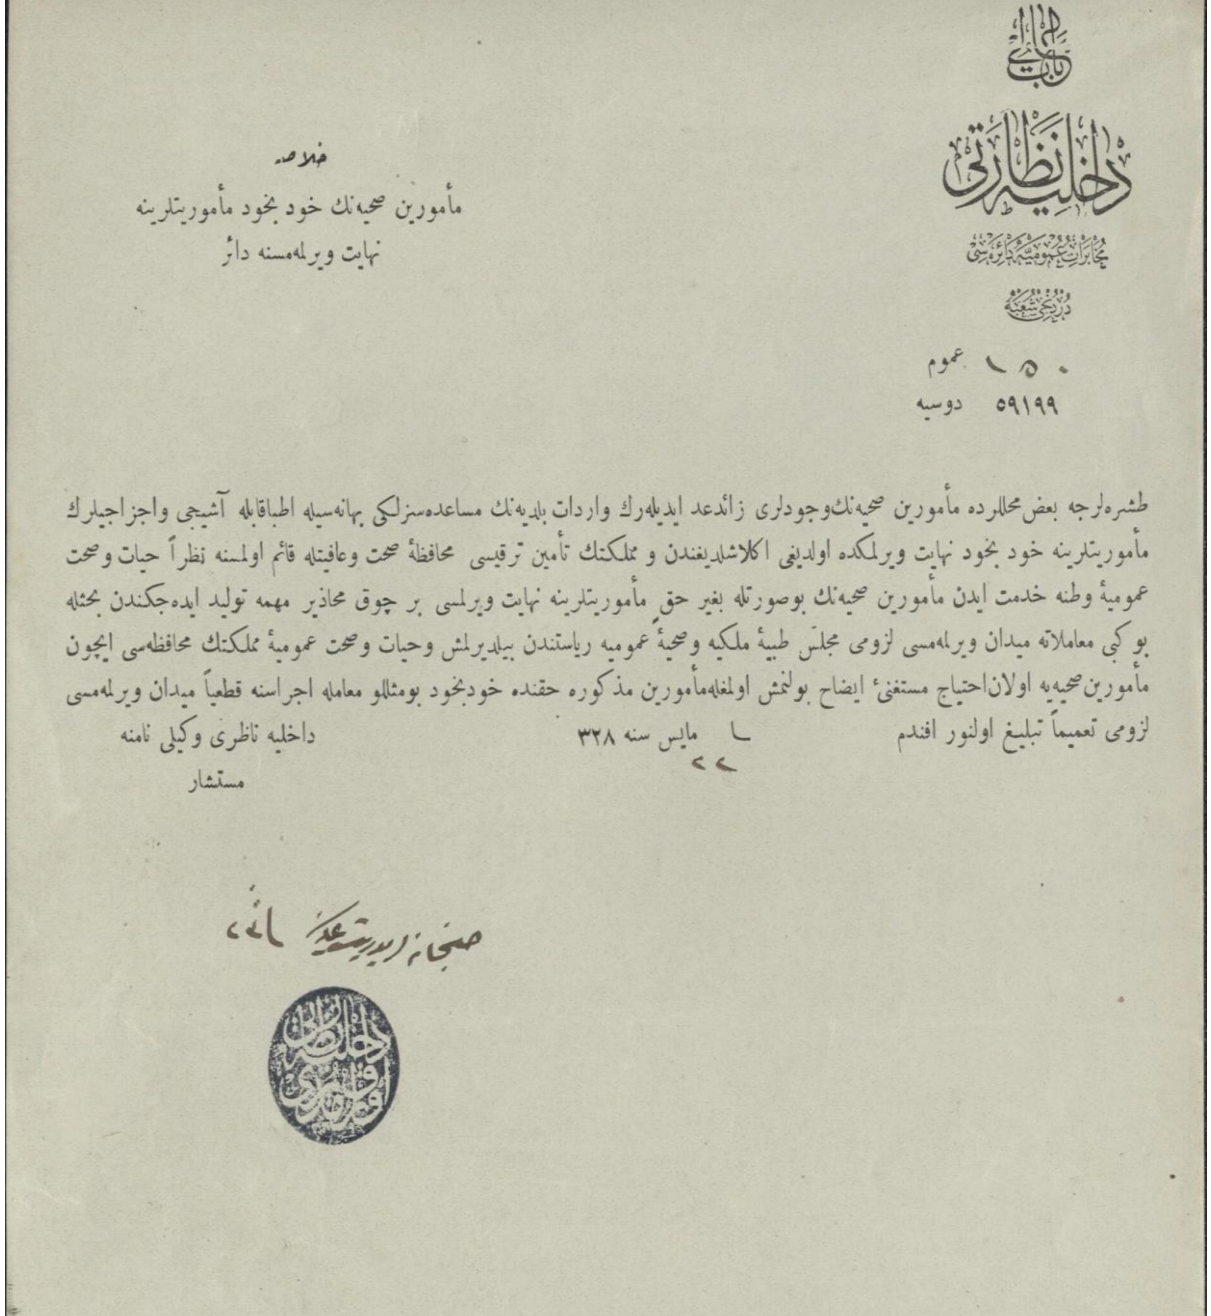 باب عالی
داخلیه نظارتی
مخابرات عمومیه دائره‌سی
دردنجی شعبه
عموم ١٥٠
دوسیه ٥٩١٩٩
خلاصه
مأمورین صحیه‌نك خود بخود مأموریتلرینه
نهایت ویرلمه‌مسنه دائر
طشره‌لرجه بعض محللرده مأمورین صحیه‌نك وجودلری زائد عد ایدیله‌رك واردات بلدیه‌نك مساعده‌سزلكی بهانه‌سیله اطبا قابله آشیجی و اجزاجیلرك
مأموریتلرینه خود بخود نهایت ویرلمكده اولدیغی اكلاشلدیغندن و مملكتك تأمین ترقیسی محافظهٔ صحت وعافیتله قائم اولمسنه نظراً حیات وصحت
عمومیهٔ وطنه خدمت ایدن مأمورین صحیه‌نك بوصورتله بغیر حق مأموریتلرینه نهایت ویرلمسی بر چوق محاذیر مهمه تولید ایده‌جكندن بحثله
بو كبی معاملاته میدان ویرلمه‌مسی لزومی مجلس طبیهٔ ملكیه وصحیهٔ عمومیه ریاستندن بیلدیرلمش وحیات وصحت عمومیهٔ مملكتك محافظه‌سی ایچون
مأمورین صحیه‌یه اولان احتیاج مستغنیٔ ایضاح بولنمش اولمغله مأمورین مذكوره حقنده خودبخود بومثللو معامله اجراسنه قطعیاً میدان ویرلمه‌مسی
لزومی تعمیماً تبلیغ اولنور افندم
مایس سنه ٣٢٨
٢٢
داخلیه ناظری وكیلی نامنه
مستشار
داخلیه نظارتی